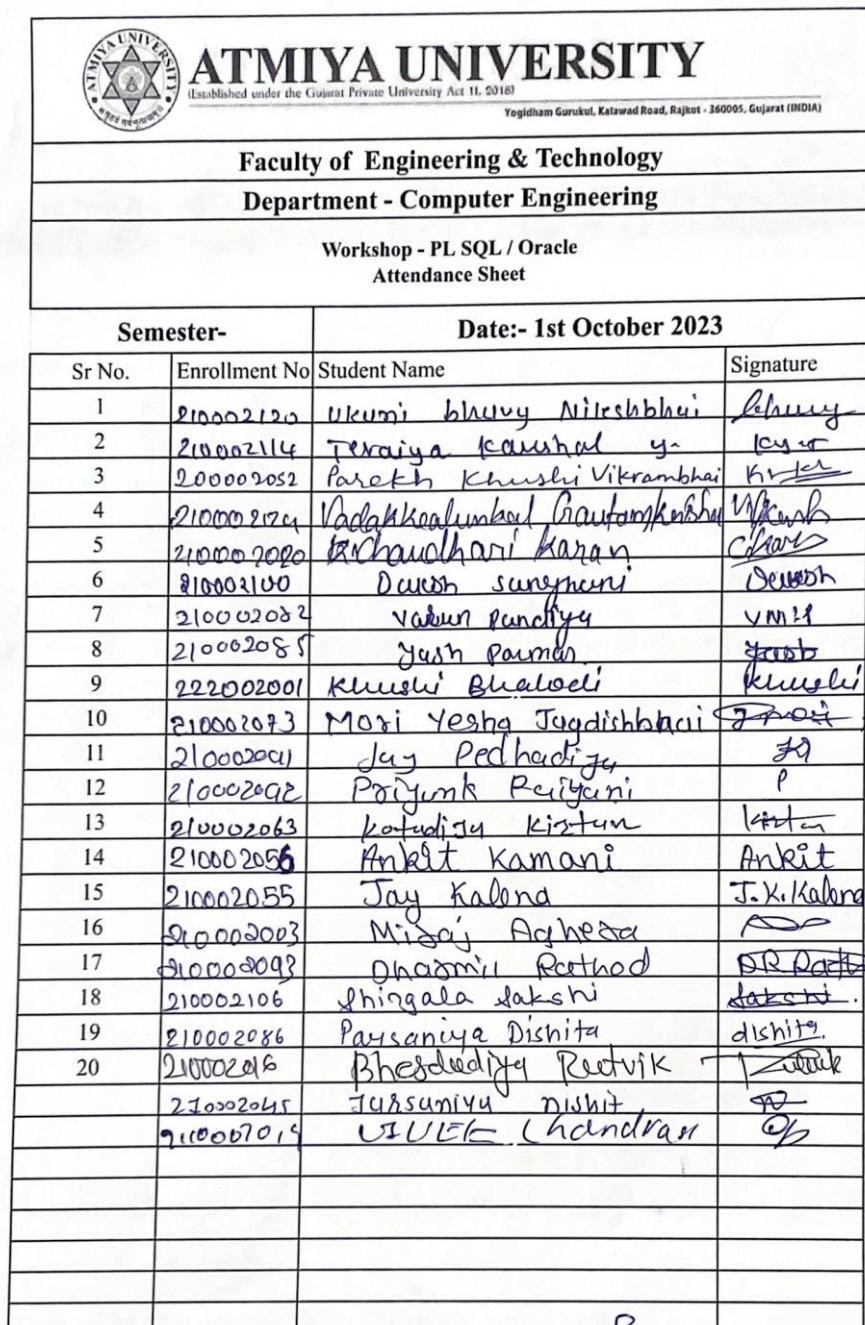 ATMIYA UNIVERSITY
ATMIYA UNIVERSITY
(Established under the Gujarat Private University Act 11, 2018)
Yogidham Gurukul, Kalawad Road, Rajkot - 360005, Gujarat (INDIA)
Faculty of Engineering & Technology
Department - Computer Engineering
Workshop - PL SQL / Oracle
Attendance Sheet
Semester- Date:- 1st October 2023
Sr No. Enrollment No Student Name Signature
1 210002120 Ukani bhuvy Nileshbhai
2 210002114 Teraiya Kaushal y.
3 200002052 Parekh Khushi Vikrambhai
4 Gautamkrishna
5 Chaudhari Karan
6 210002100 Devesh sanghani Devesh
7 210002082 varun pandiya
8 210002085 Yash Parmar Yash
9 222002001 Khushi Bhalodi Khushi
10 210002073 Mori Yesha Jagdishbhai
11 210002091 Jay Pedhadiya
12 210002092 Priyank Raiyani P
13 210002063 Kotadiya Kirtan Kirtan
14 210002056 Ankit Kamani Ankit
15 210002055 Jay Kalena J.K.Kalena
16 210002003 Miraj Aghera
17 210002093 Dharmil Rathod
18 210002106 Shingala Sakshi Sakshi
19 210002086 Parsaniya Dishita dishita
20 210002016 Bhesdadiya Rutvik Rutvik
210002045 Jarsaniya nishit
VIVEK Chandran